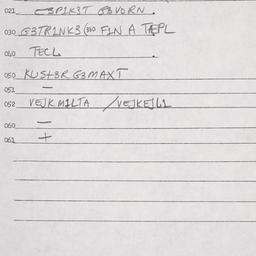 021 G3P1K3T G3VORN.
030 G3TR1NK3 (310 F1N A TÆPL
040 TECL
050 KUST3R G3MAXT
051 –
052 VEJKM1LTA /VEJKEJL1
060 –
061 +